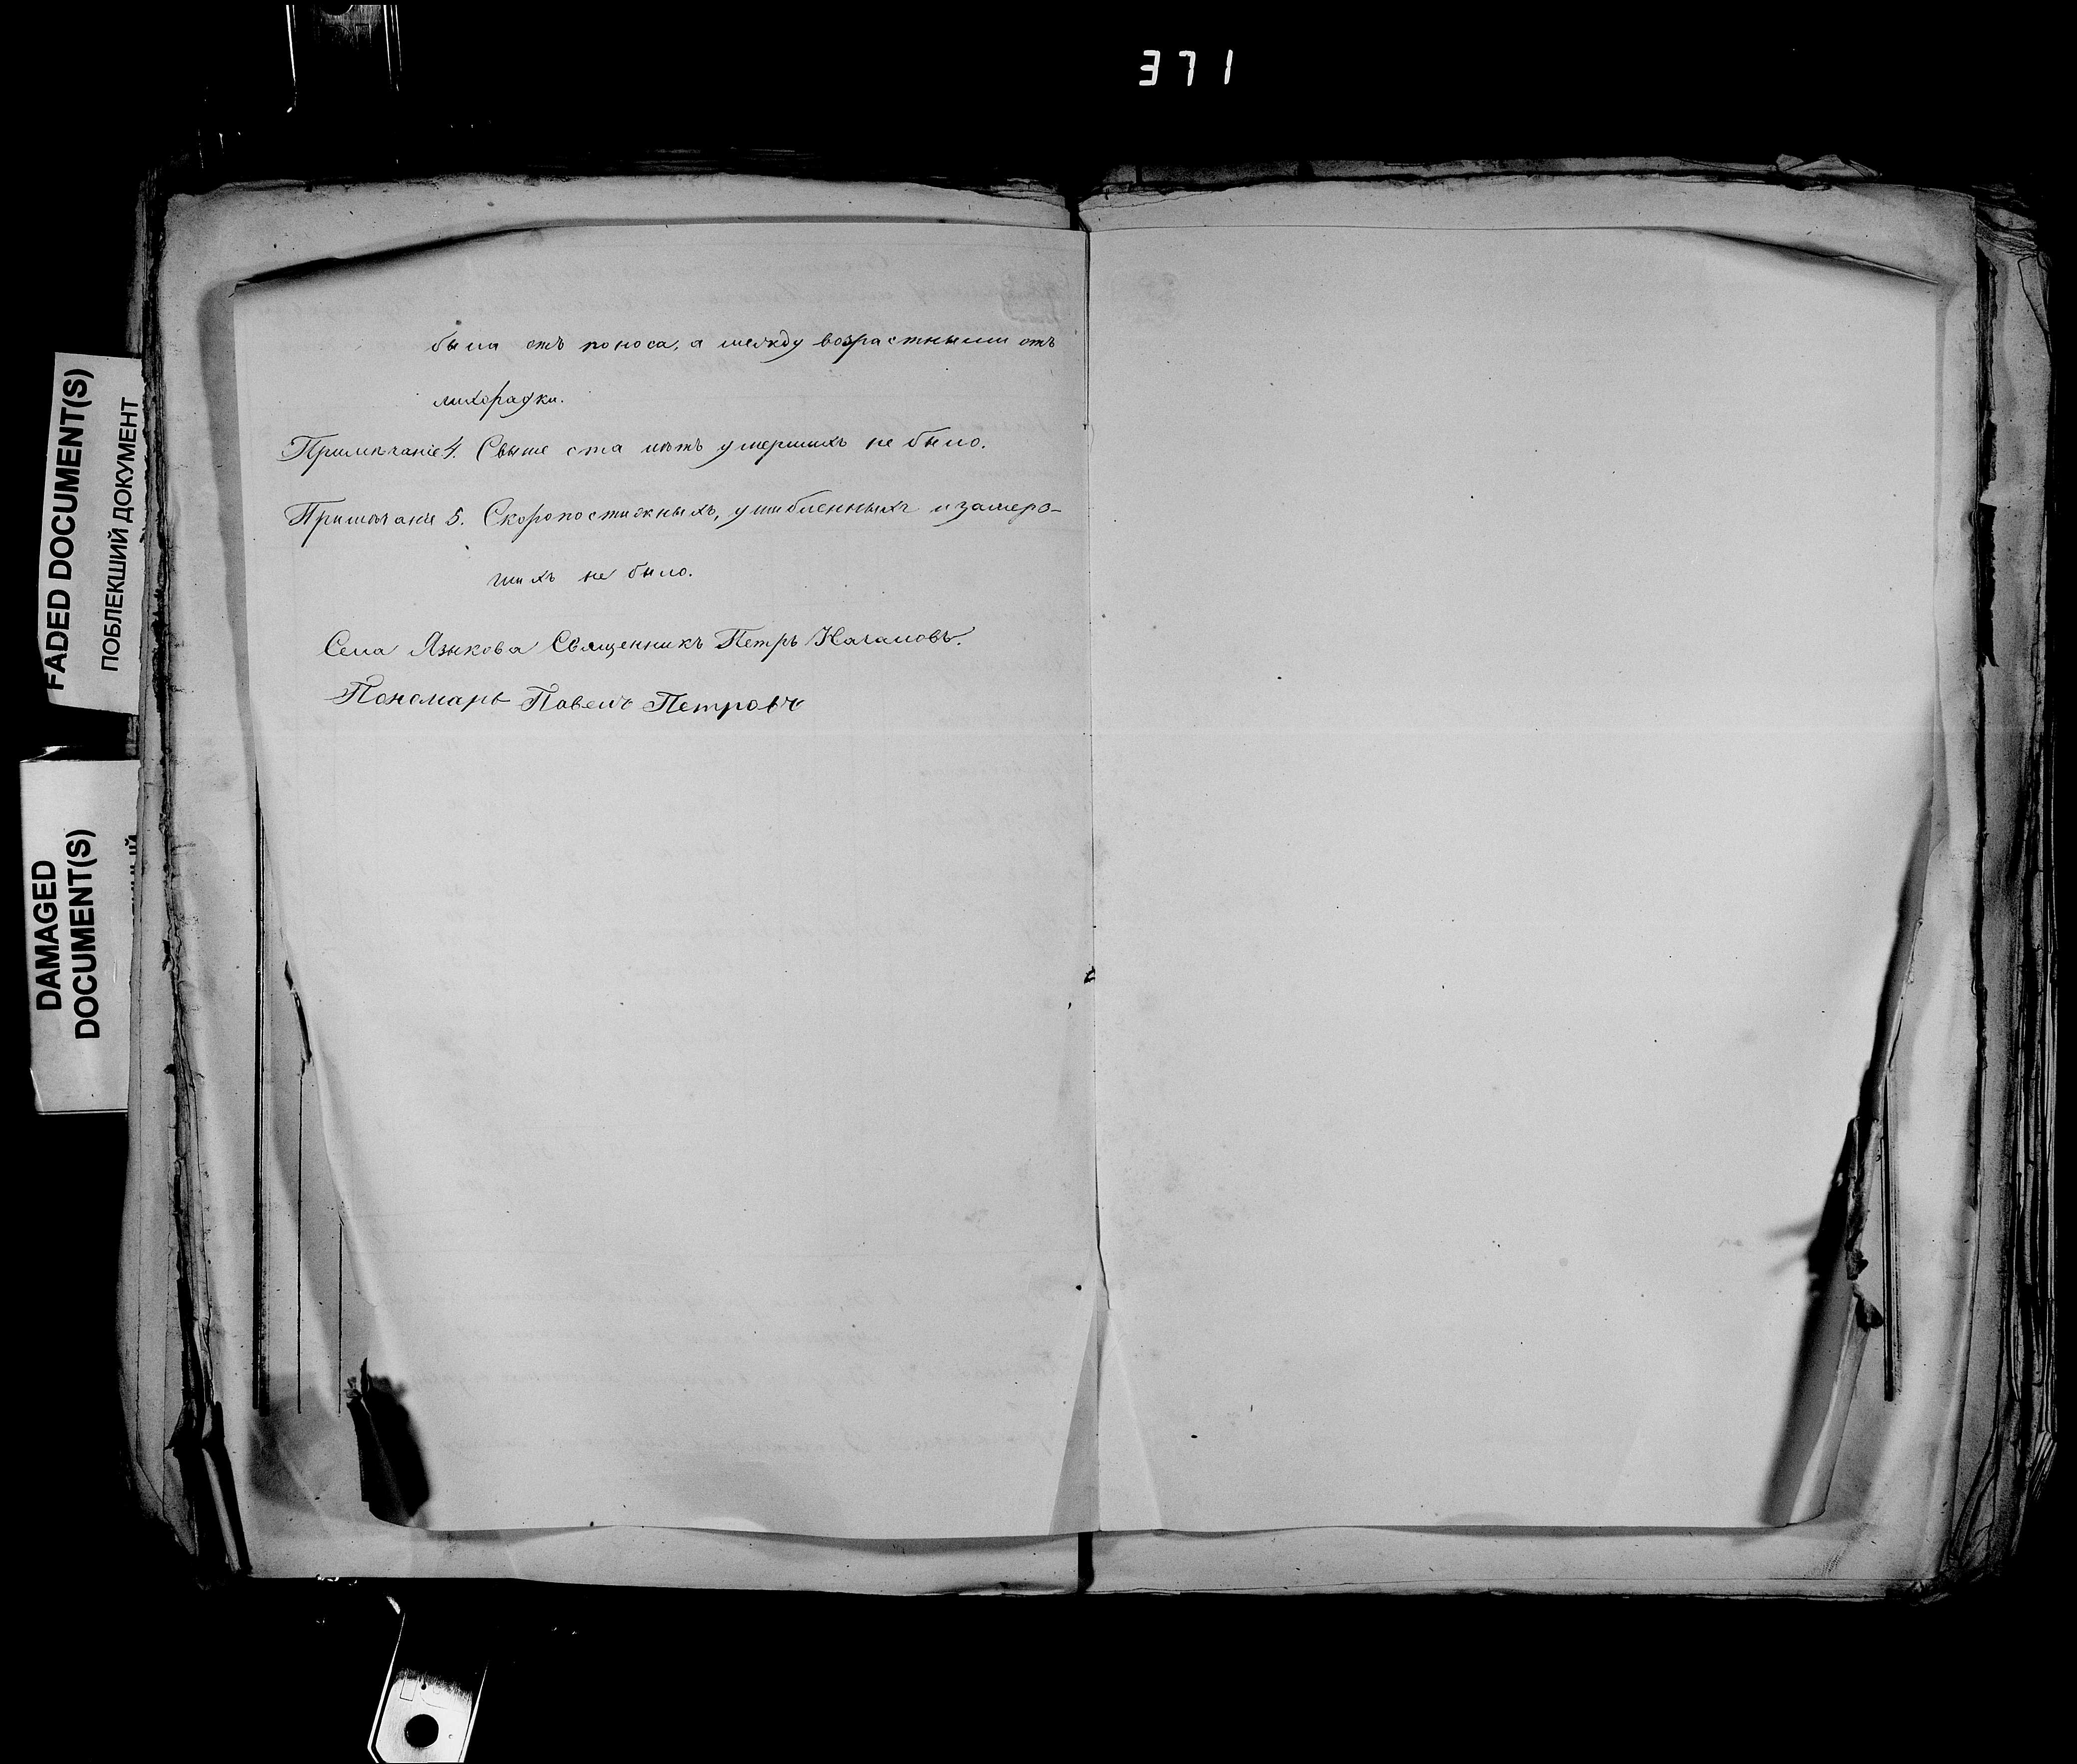 371
FADED DOCUMENT(S)
ПОБЛЕКШИЙ ДОКУМЕНТ
DAMAGED
DOCUMENT(S)
была отъ поноса, а между возрастными отъ
лихорадки.
Примѣчаніе 4. Свыше ста лѣтъ умершихъ не было.
Примѣчаніе 5. Скоропостижныхъ, ушибленныхъ и замерз-
шихъ не было.
Села Языкова Священникъ Петръ
Пономарь Павелъ Петровъ